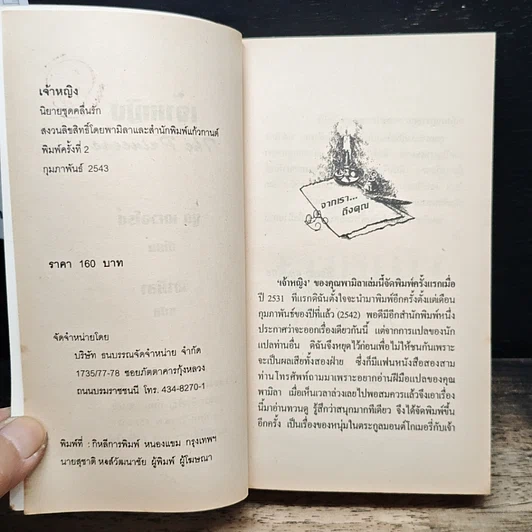 เจ้าหญิง
นิยายชุดคลื่นรัก
สงวนลิขสิทธิ์โดยพามิลาและสำนักพิมพ์แก้วกานต์
พิมพ์ครั้งที่ 2
กุมภาพันธ์ 2543
ราคา 160 บาท
จัดจำหน่ายโดย
บริษัท ธนบรรณจัดจำหน่าย จำกัด
1735/77-78 ซอยภัตตาคารกุ้งหลวง
ถนนบรมราชชนนี โทร. 434-8270-1
พิมพ์ที่ : กิหลีการพิมพ์ หนองแขม กรุงเทพฯ
นายสุชาติ หงส์วัฒนาชัย ผู้พิมพ์ ผู้โฆษณา
จากเรา...
ถึงคุณ
'เจ้าหญิง' ของคุณพามิลาเล่มนี้จัดพิมพ์ครั้งแรกเมื่อ
ปี 2531 ทีแรกดิฉันตั้งใจจะนำมาพิมพ์อีกครั้งตั้งแต่เดือน
กุมภาพันธ์ของปีที่แล้ว (2542) พอดีมีอีกสำนักพิมพ์หนึ่ง
ประกาศว่าจะออกเรื่องเดียวกันนี้ แต่จากการแปลของนัก
แปลท่านอื่น ดิฉันจึงหยุดไว้ก่อนเพื่อไม่ให้ชนกันเพราะ
จะเป็นผลเสียทั้งสองฝ่าย ซึ่งก็มีแฟนหนังสือสองสาม
ท่านโทรศัพท์ถามมาเพราะอยากอ่านฝีมือแปลของคุณ
พามิลา เมื่อเห็นเวลาล่วงเลยไปพอสมควรแล้วจึงเอาเรื่อง
นี้มาอ่านทวนดู รู้สึกว่าสนุกมากทีเดียว จึงได้จัดพิมพ์ขึ้น
อีกครั้ง เป็นเรื่องของหนุ่มในตระกูลมอนต์โกเมอรี่กับเจ้า